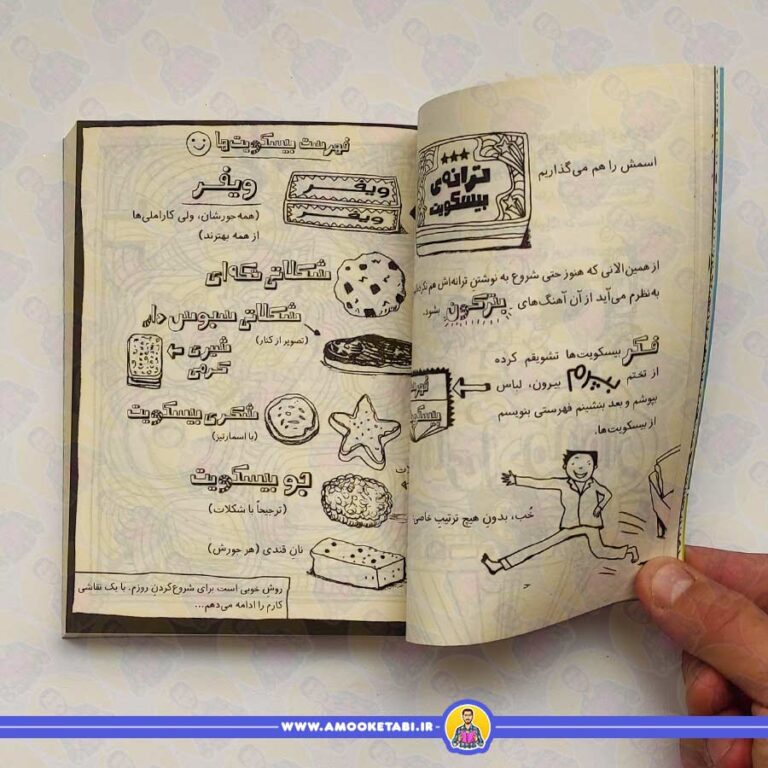 اسمش را هم می‌گذاریم
ترانه‌ی
بیسکویت
از همین‌الانی که هنوز حتی شروع به نوشتنِ ترانه‌اش هم
به‌نظرم می‌آید از آن آهنگ‌های بترکون بشود.
فکر بیسکویت‌ها تشویقم کرده
از تختم بپرم بیرون، لباس
بپوشم و بعد بنشینم فهرستی بنویسم
از بیسکویت‌ها.
خُب، بدونِ هیچ ترتیبِ خاصی:
فهرست بیسکویت‌ها
ویفر
ویفر
ویفر
(همه‌جورشان، ولی کاراملی‌ها
از همه بهترند)
شکلاتی تکه‌ای
شکلاتی سبوس‌دار
(تصویر از کنار)
شیری
کرمی
شکری بیسکویت
(با اسمارتیز)
جو بیسکویت
(ترجیحاً با شکلات)
نان قندی (هر جورش)
روشِ خوبی است برای شروع‌کردنِ روزم. با یک نقاشی
کارم را ادامه می‌دهم...
WWW.AMOOKETABI.IR